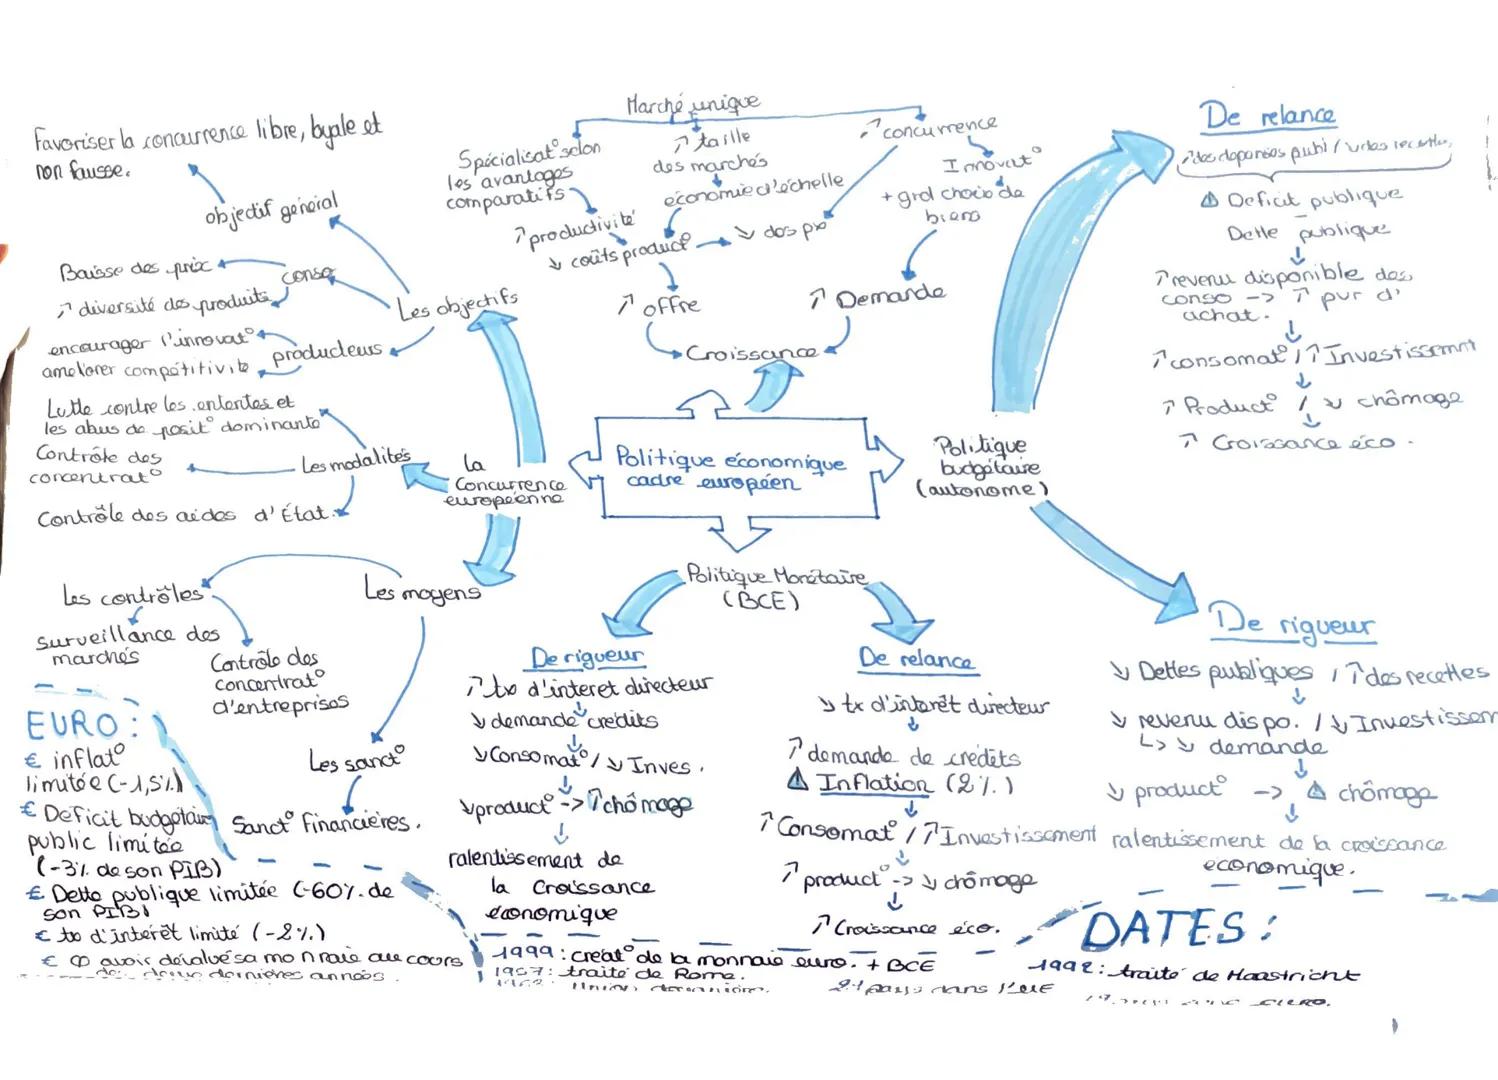 Marché unique
Spécialisat° selon
les avantages
comparatifs
↗ productivité
↘ coûts product° → ↘ des prix
↗ taille
des marchés
économie d'échelle
↗ concurrence
Innovat°
+ grd choix de
biens
↗ offre
↗ Demande
Croissance
Politique économique
cadre européen
La
Concurrence
européenne
Les objectifs
objectif général
Favoriser la concurrence libre, loyale et
non fausse.
conso
Baisse des prix
↗ diversité des produits
producteurs
encourager l'innovat°
ameliorer compétitivité
Les modalités
Lutte contre les ententes et
les abus de posit° dominante
Contrôle des
concentrat°
Contrôle des aides d'État.
Les moyens
Les contrôles
surveillance des
marchés
Contrôle des
concentrat°
d'entreprises
Les sanct°
Sanct° financières.
Politique Monétaire
(BCE)
De rigueur
↗ tx d'interet directeur
↓
↘ demande credits
↓
↘ Consomat° / ↘ Inves.
↓
↘ product° -> ↗ chômage
↓
ralentissement de
la Croissance
économique
De relance
↘ tx d'intérêt directeur
↓
↗ demande de crédits
⚠ Inflation (2%)
↓
↗ Consomat° / ↗ Investissement
↓
↗ product° -> ↘ chômage
↓
↗ Croissance éco.
Politique
budgétaire
(autonome)
De relance
↗ des dépenses publi / ↘ des recettes
⚠ Deficit publique
Dette publique
↗ revenu disponible des
conso -> ↗ pvr d'
achat.
↓
↗ consomat° / ↗ Investissemnt
↓
↗ Product° / ↘ chômage
↓
↗ Croissance éco.
De rigueur
↘ Dettes publiques / ↗ des recettes
↓
↘ revenu dispo. / ↘ Investissem
↳ ↘ demande
↓
↘ product° -> ⚠ chômage
↓
ralentissement de la croissance
economique.
EURO :
€ inflat°
limitée (-1,5%)
€ Deficit budgétaire
public limitée
(-3% de son PIB)
€ Dette publique limitée (-60% de
son PIB)
€ tx d'intérêt limité (-2%)
€ avoir dévalué sa monnaie au cours
des deux dernières années.
DATES :
1999 : créat° de la monnaie euro. + BCE
1957 : traité de Rome.
Union douanière.
pays dans l'UE
1992 : traité de Maastricht
euro.